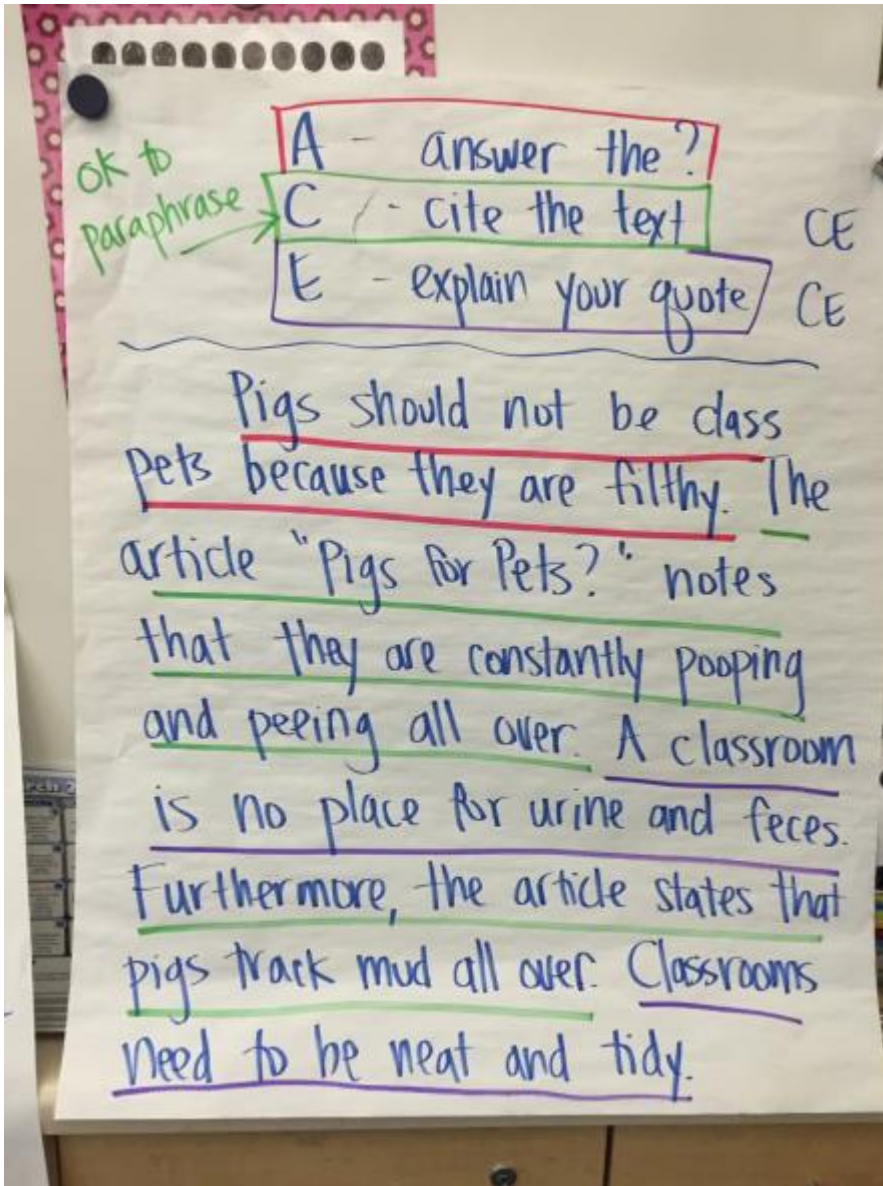 ok to
paraphrase
A - answer the ?
C - cite the text
E - explain your quote
CE
CE
Pigs should not be class
pets because they are filthy. The
article "Pigs for Pets?" notes
that they are constantly pooping
and peeing all over. A classroom
is no place for urine and feces.
Furthermore, the article states that
pigs track mud all over. Classrooms
need to be neat and tidy.